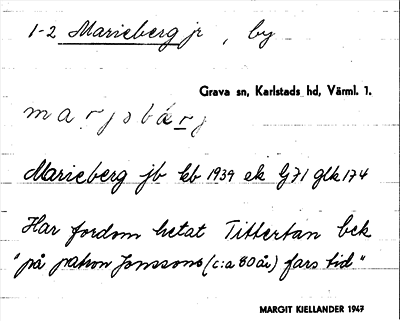 1-2 Marieberg jr, by
Grava sn, Karlstads hd, Värml. l.
marjsbärj
Marieberg jb kb 1939 ek G71 glk 174
Har fordom hetat Tittertan bek
"på patron Jonssons (c:a 80 år) fars tid"
MARGIT KIELLANDER 1947